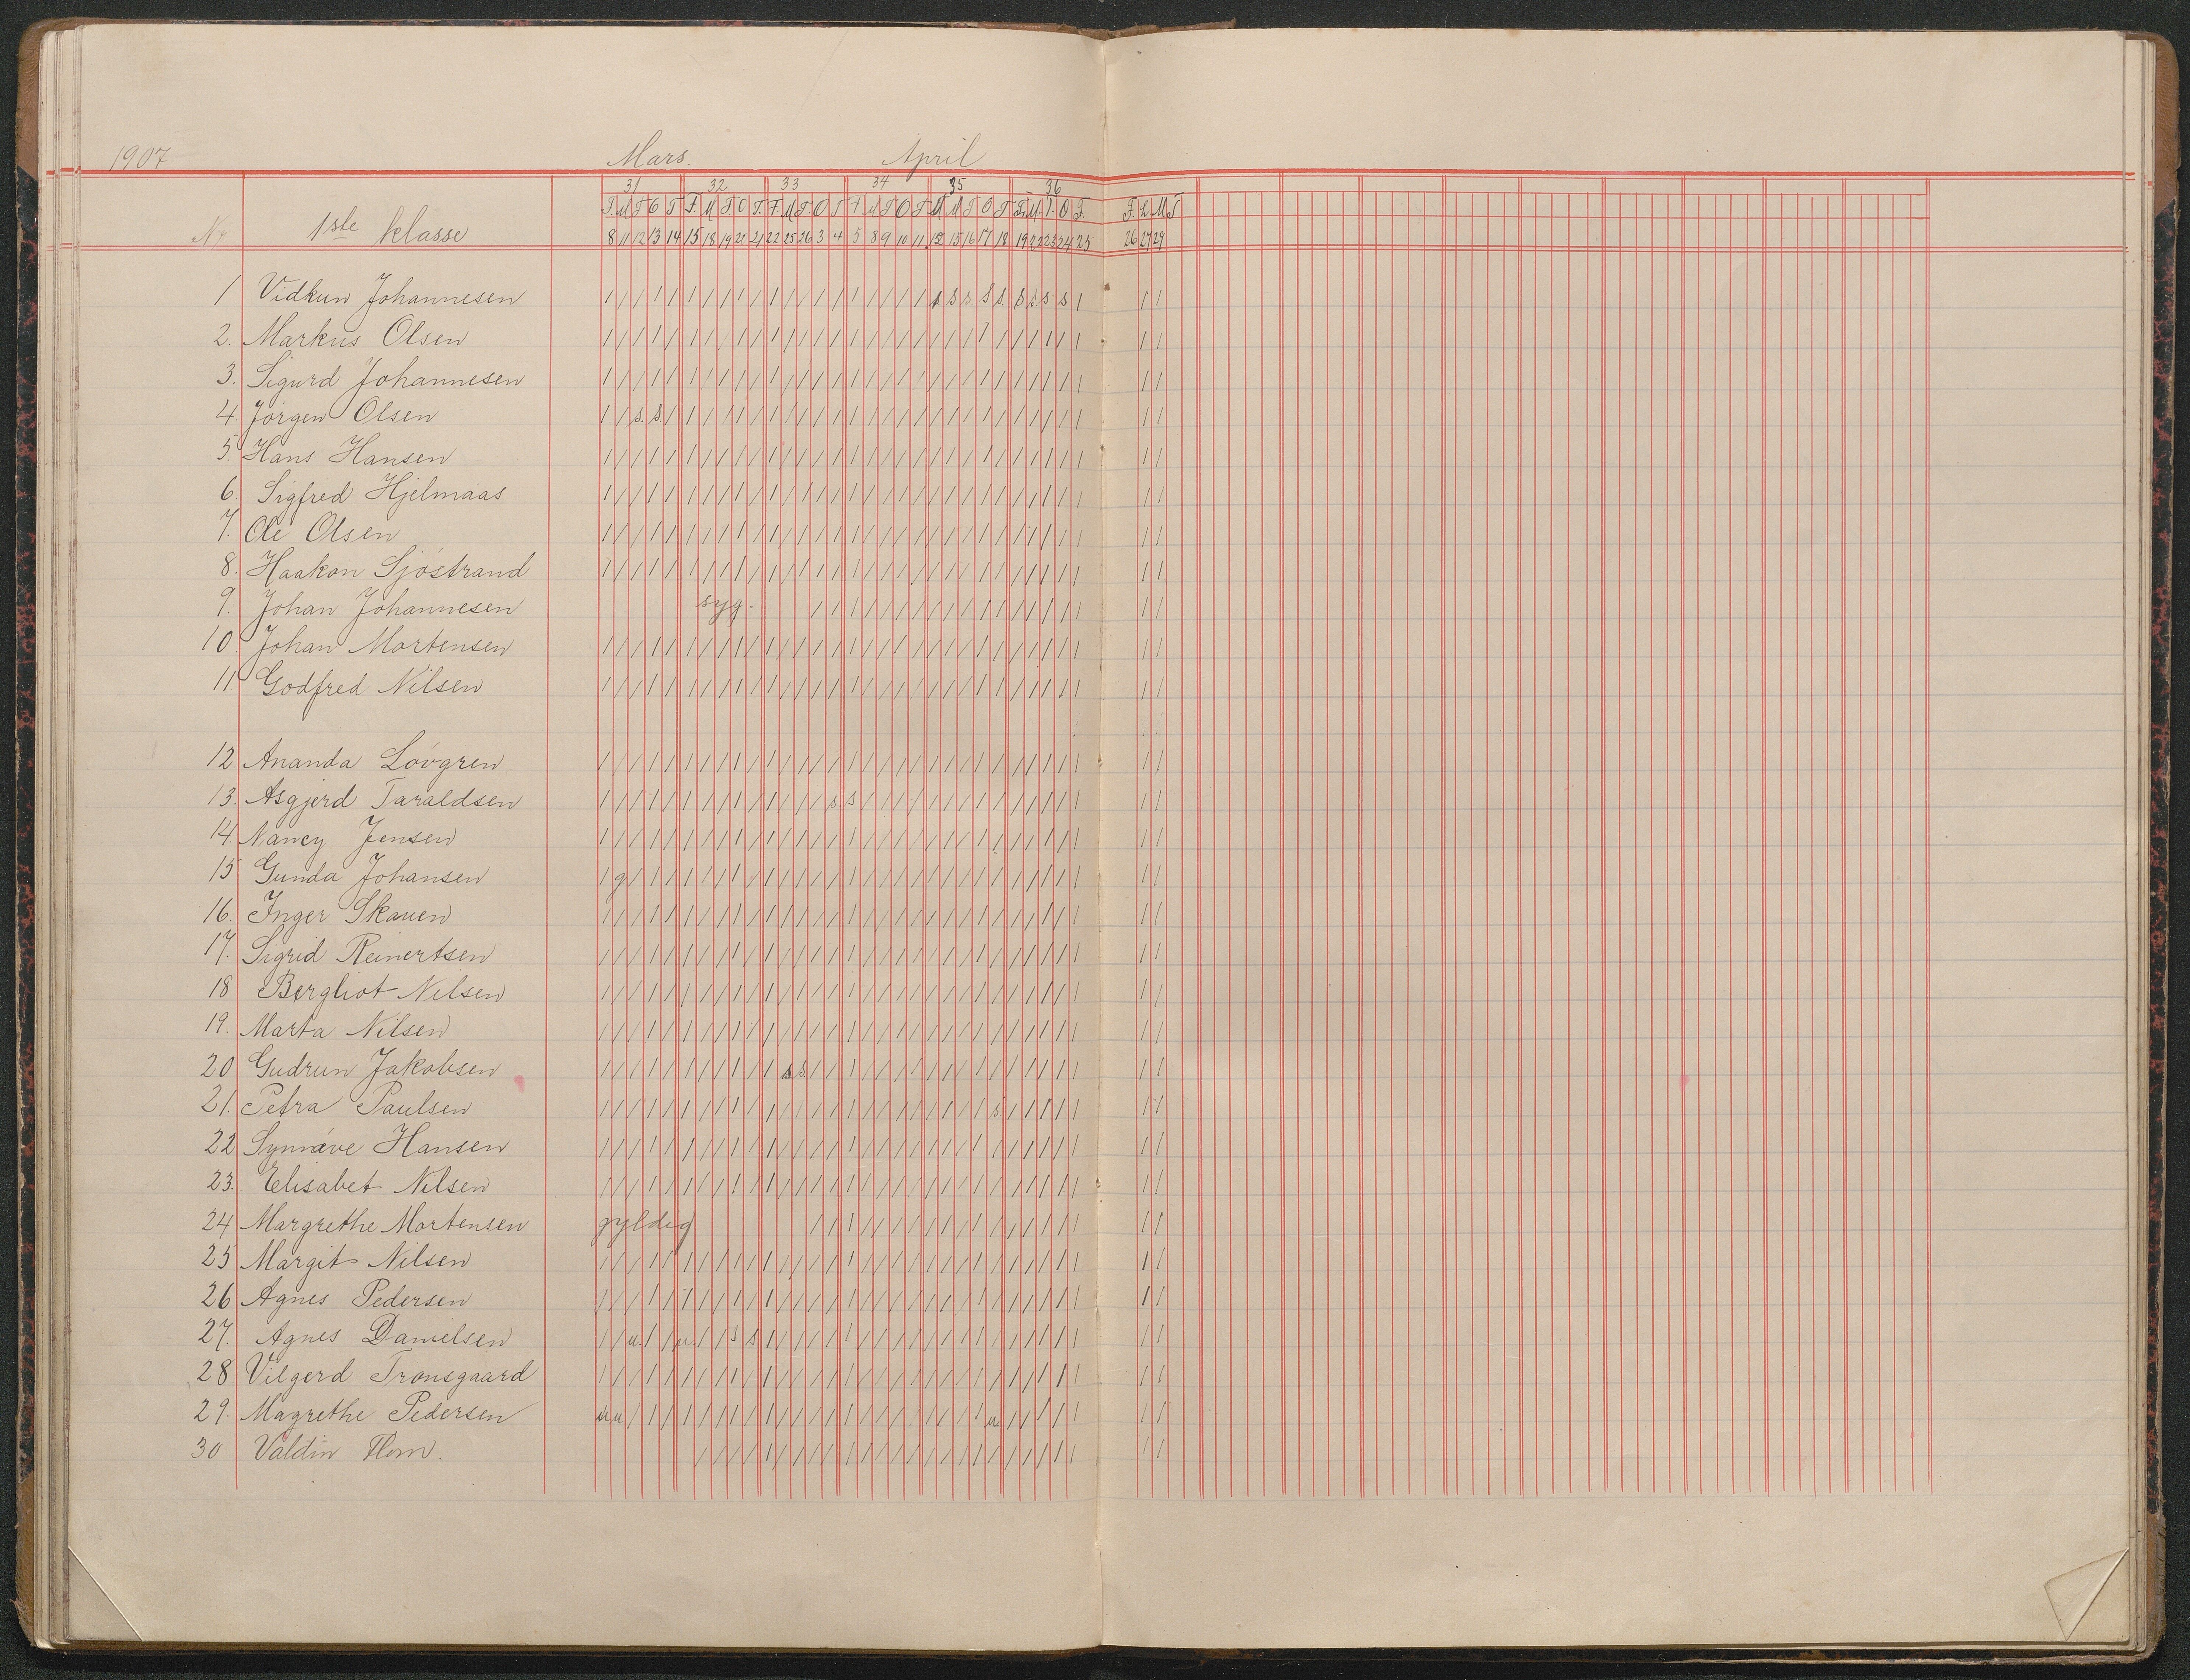 1907 Mars. April
31 32 33 34 35 36
No 1ste klasse
8 11 12 13 14 15 18 19 20 21 22 25 26 3 4 5 8 9 10 11 12 15 16 17 18 19 22 23 24 25 26 27 29
1 Vidkun Johannesen
2. Markus Olsen
3. Sigurd Johannesen
4. Jörgen Olsen s. s.
5. Hans Hansen
6. Sigfred Hjelmaas
7. Ole Olsen
8. Haakon Sjöstrand
9. Johan Johannesen syg.
10 Johan Mortensen
11 Godfred Nilsen
12. Ananda Lövgren
13. Asgjerd Taraldsen s. s
14. Nancy Jensen
15 Gunda Johansen g
16. Inger Skauen
17. Sigrid Reinertsen
18 Bergliot Nilsen
19. Marta Nilsen
20 Gudrun Jakobsen s s.
21. Petra Paulsen s.
22 Synnæve Hansen
23. Elisabet Nilsen
24 Margrethe Mortensen gyldig
25 Margit Nilsen
26 Agnes Pedersen
27. Agnes Danielsen u. u. s s
28 Vilgerd Tronsgaard
29. Magrethe Pedersen u u u.
30 Valdin Flom.